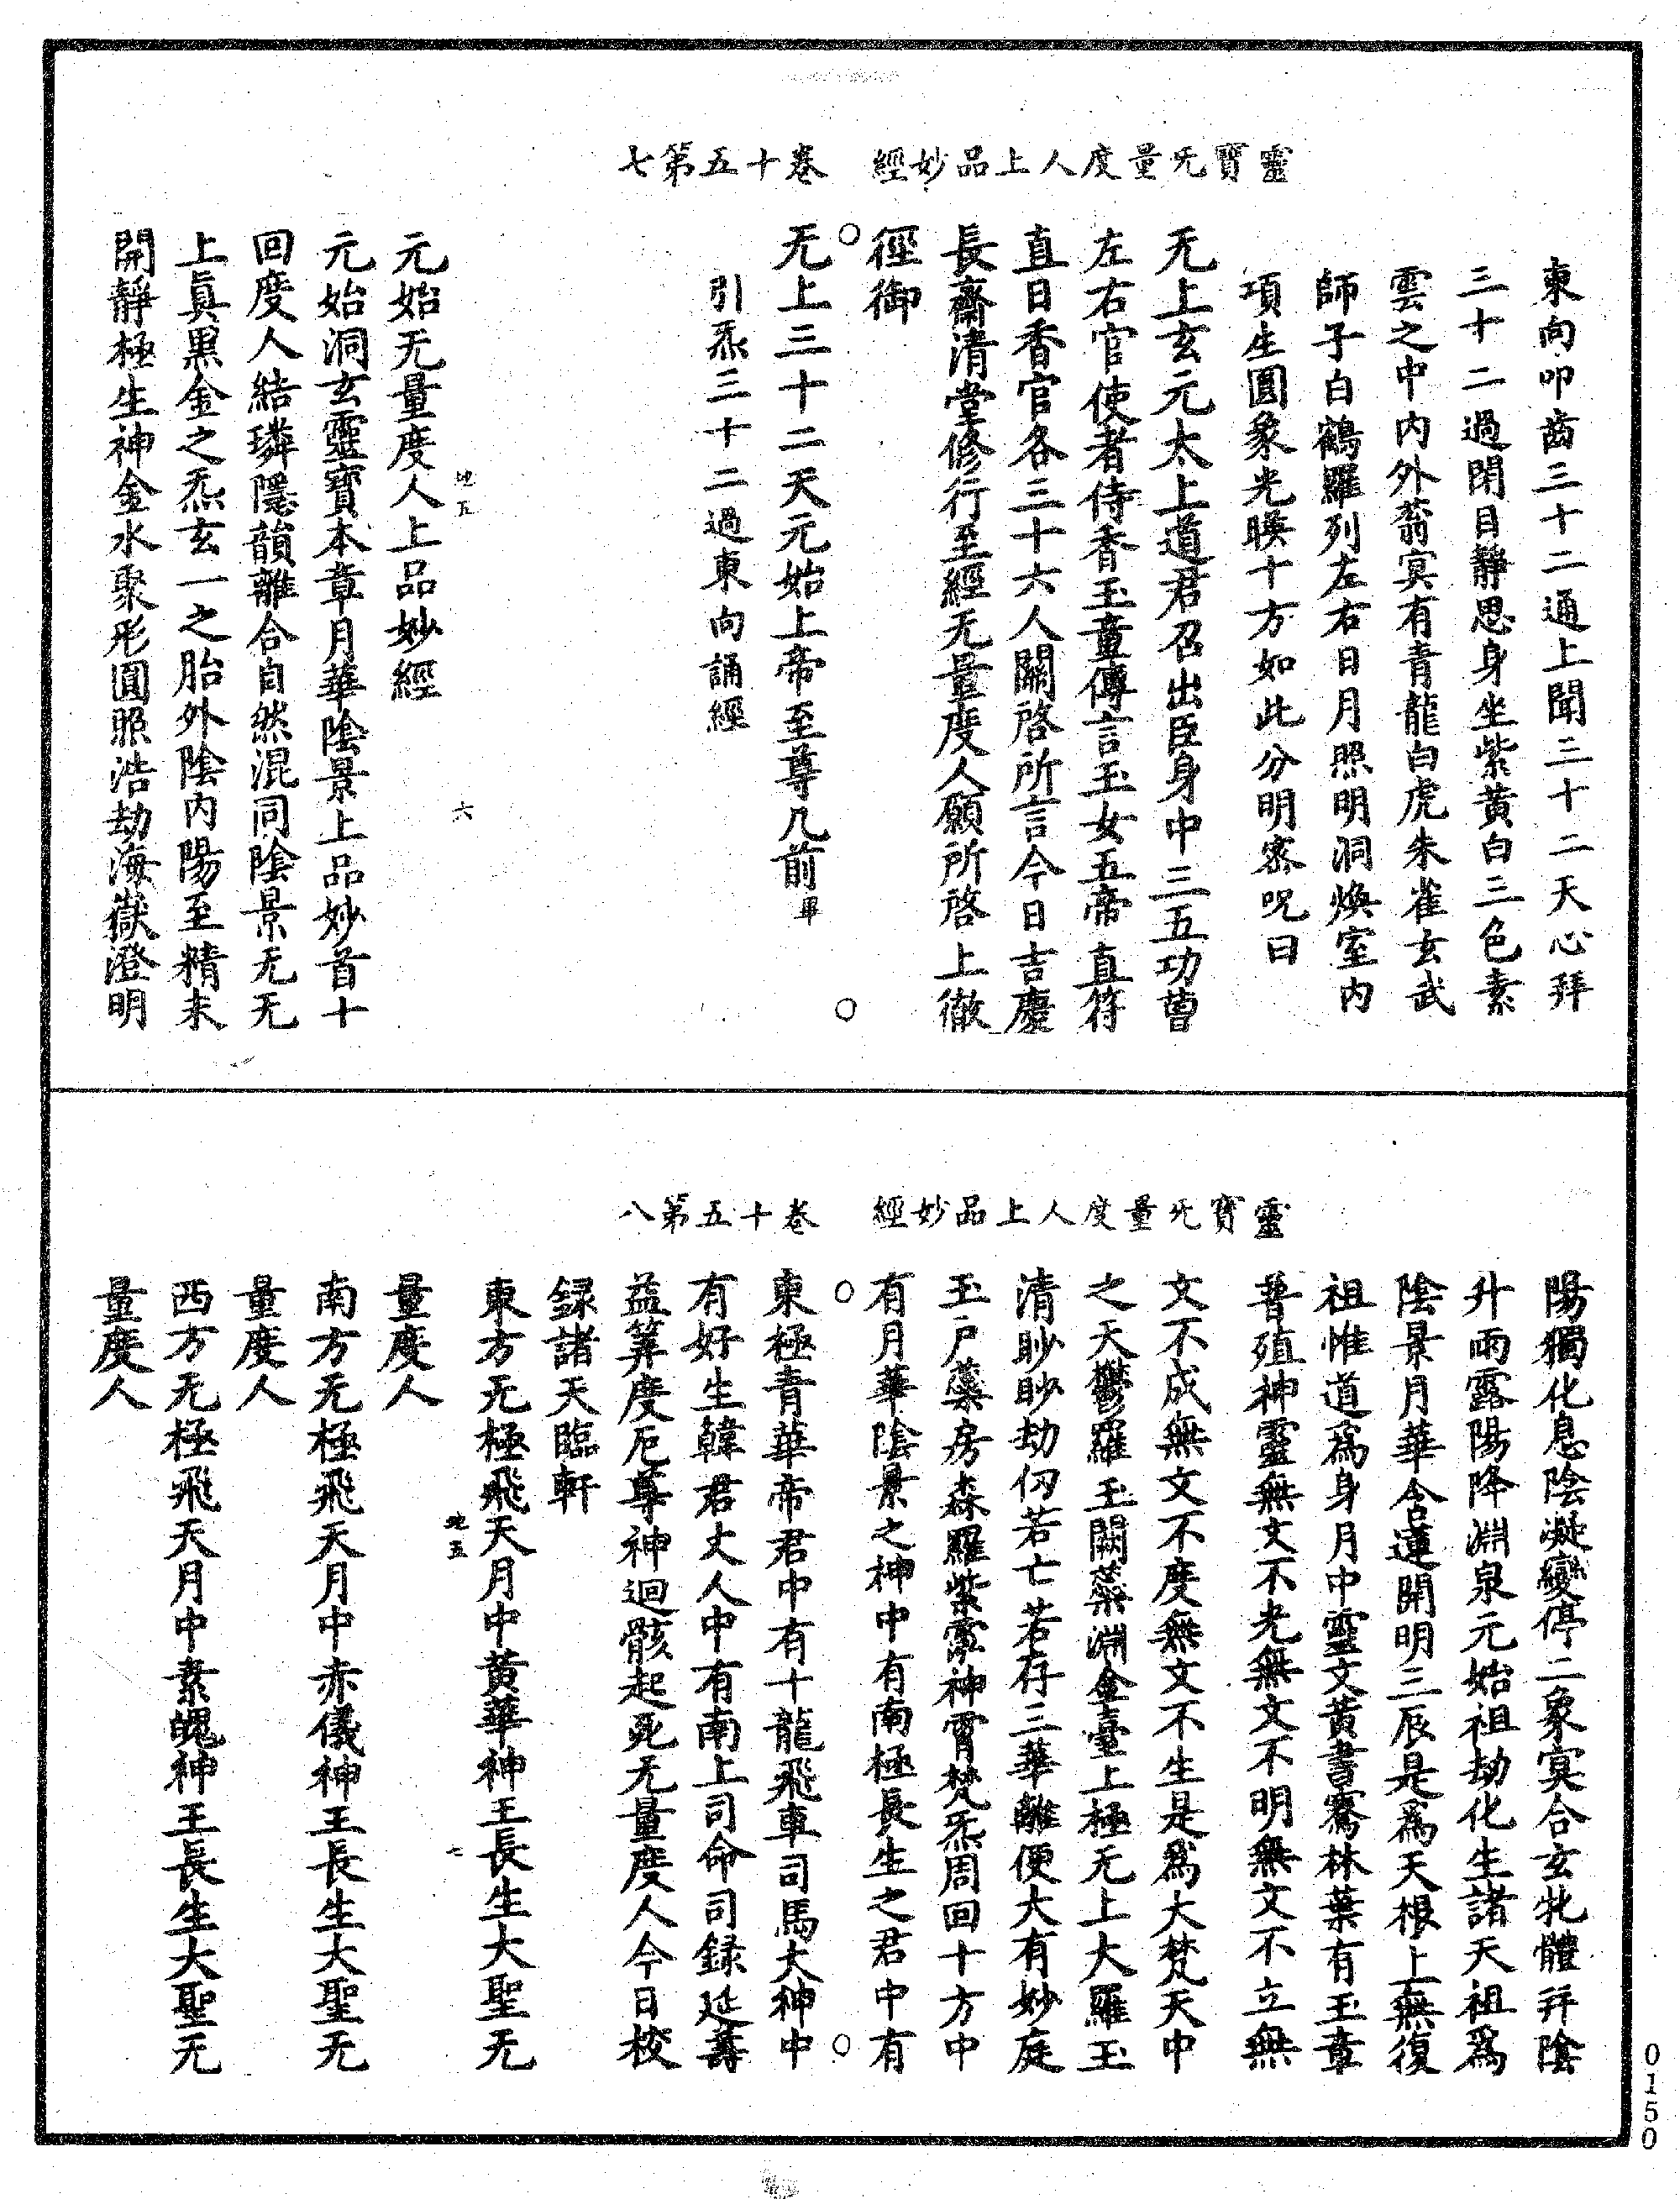 靈寶无量度人上品妙經 卷十五第七
東向叩齒三十二通上聞三十二天心拜
三十二過閉目靜思身坐紫黃白三色素
雲之中內外蓊冥有青龍白虎朱雀玄武
師子白鶴羅列左右日月照明洞煥室內
項生圓象光暎十方如此分明密呪曰
无上玄元太上道君召出臣身中三五功曹
左右官使者侍香玉童傳言玉女五帝直符
直日香官各三十六人關啓所言今日吉慶
長齋清堂修行至經无量度人願所啓上徹
徑御
无上三十二天元始上帝至尊几前畢
引炁三十二過東向誦經
地五 六
元始无量度人上品妙經
元始洞玄靈寶本章月華陰景上品妙首十
回度人結璘隱韻離合自然混同陰景无无
上真黑金之炁玄一之胎外陰內陽至精未
開靜極生神金水聚形圓照浩劫海嶽澄明
靈寶无量度人上品妙經 卷十五第八
陽獨化息陰凝變停二象冥合玄牝體拜陰
升雨露陽降淵泉元始祖劫化生諸天祖爲
陰景月華含蓮開明三辰是爲天根上無復
祖惟道爲身月中靈文黃書騫林葉有玉章
普殖神靈無文不光無文不明無文不立無
文不成無文不度無文不生是爲大梵天中
之天鬱羅玉闕蘂淵金臺上極无上大羅玉
清眇眇劫仞若亡若存三華離便大有妙庭
玉戶蘂房森羅紫雲神霄梵炁周回十方中
有月華陰景之神中有南極長生之君中有
東極青華帝君中有十龍飛車司馬大神中
有好生韓君丈人中有南上司命司録延壽
益筭度厄尊神迴骸起死无量度人今日校
録諸天臨軒
東方无極飛天月中黃華神王長生大聖无
地五 七
量度人
南方无極飛天月中赤儀神王長生大聖无
量度人
西方无極飛天月中素魄神王長生大聖无
量度人
0150